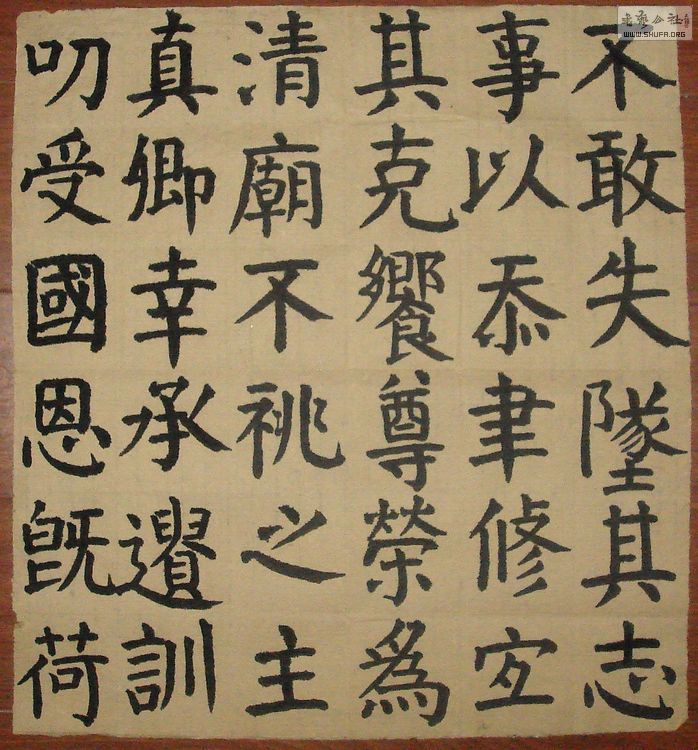 不敢失墜其志
事以忝聿修宜
其克饗尊榮爲
清廟不祧之主
真卿幸承遺訓
叨受國恩既荷
WWW.SHUFA.ORG